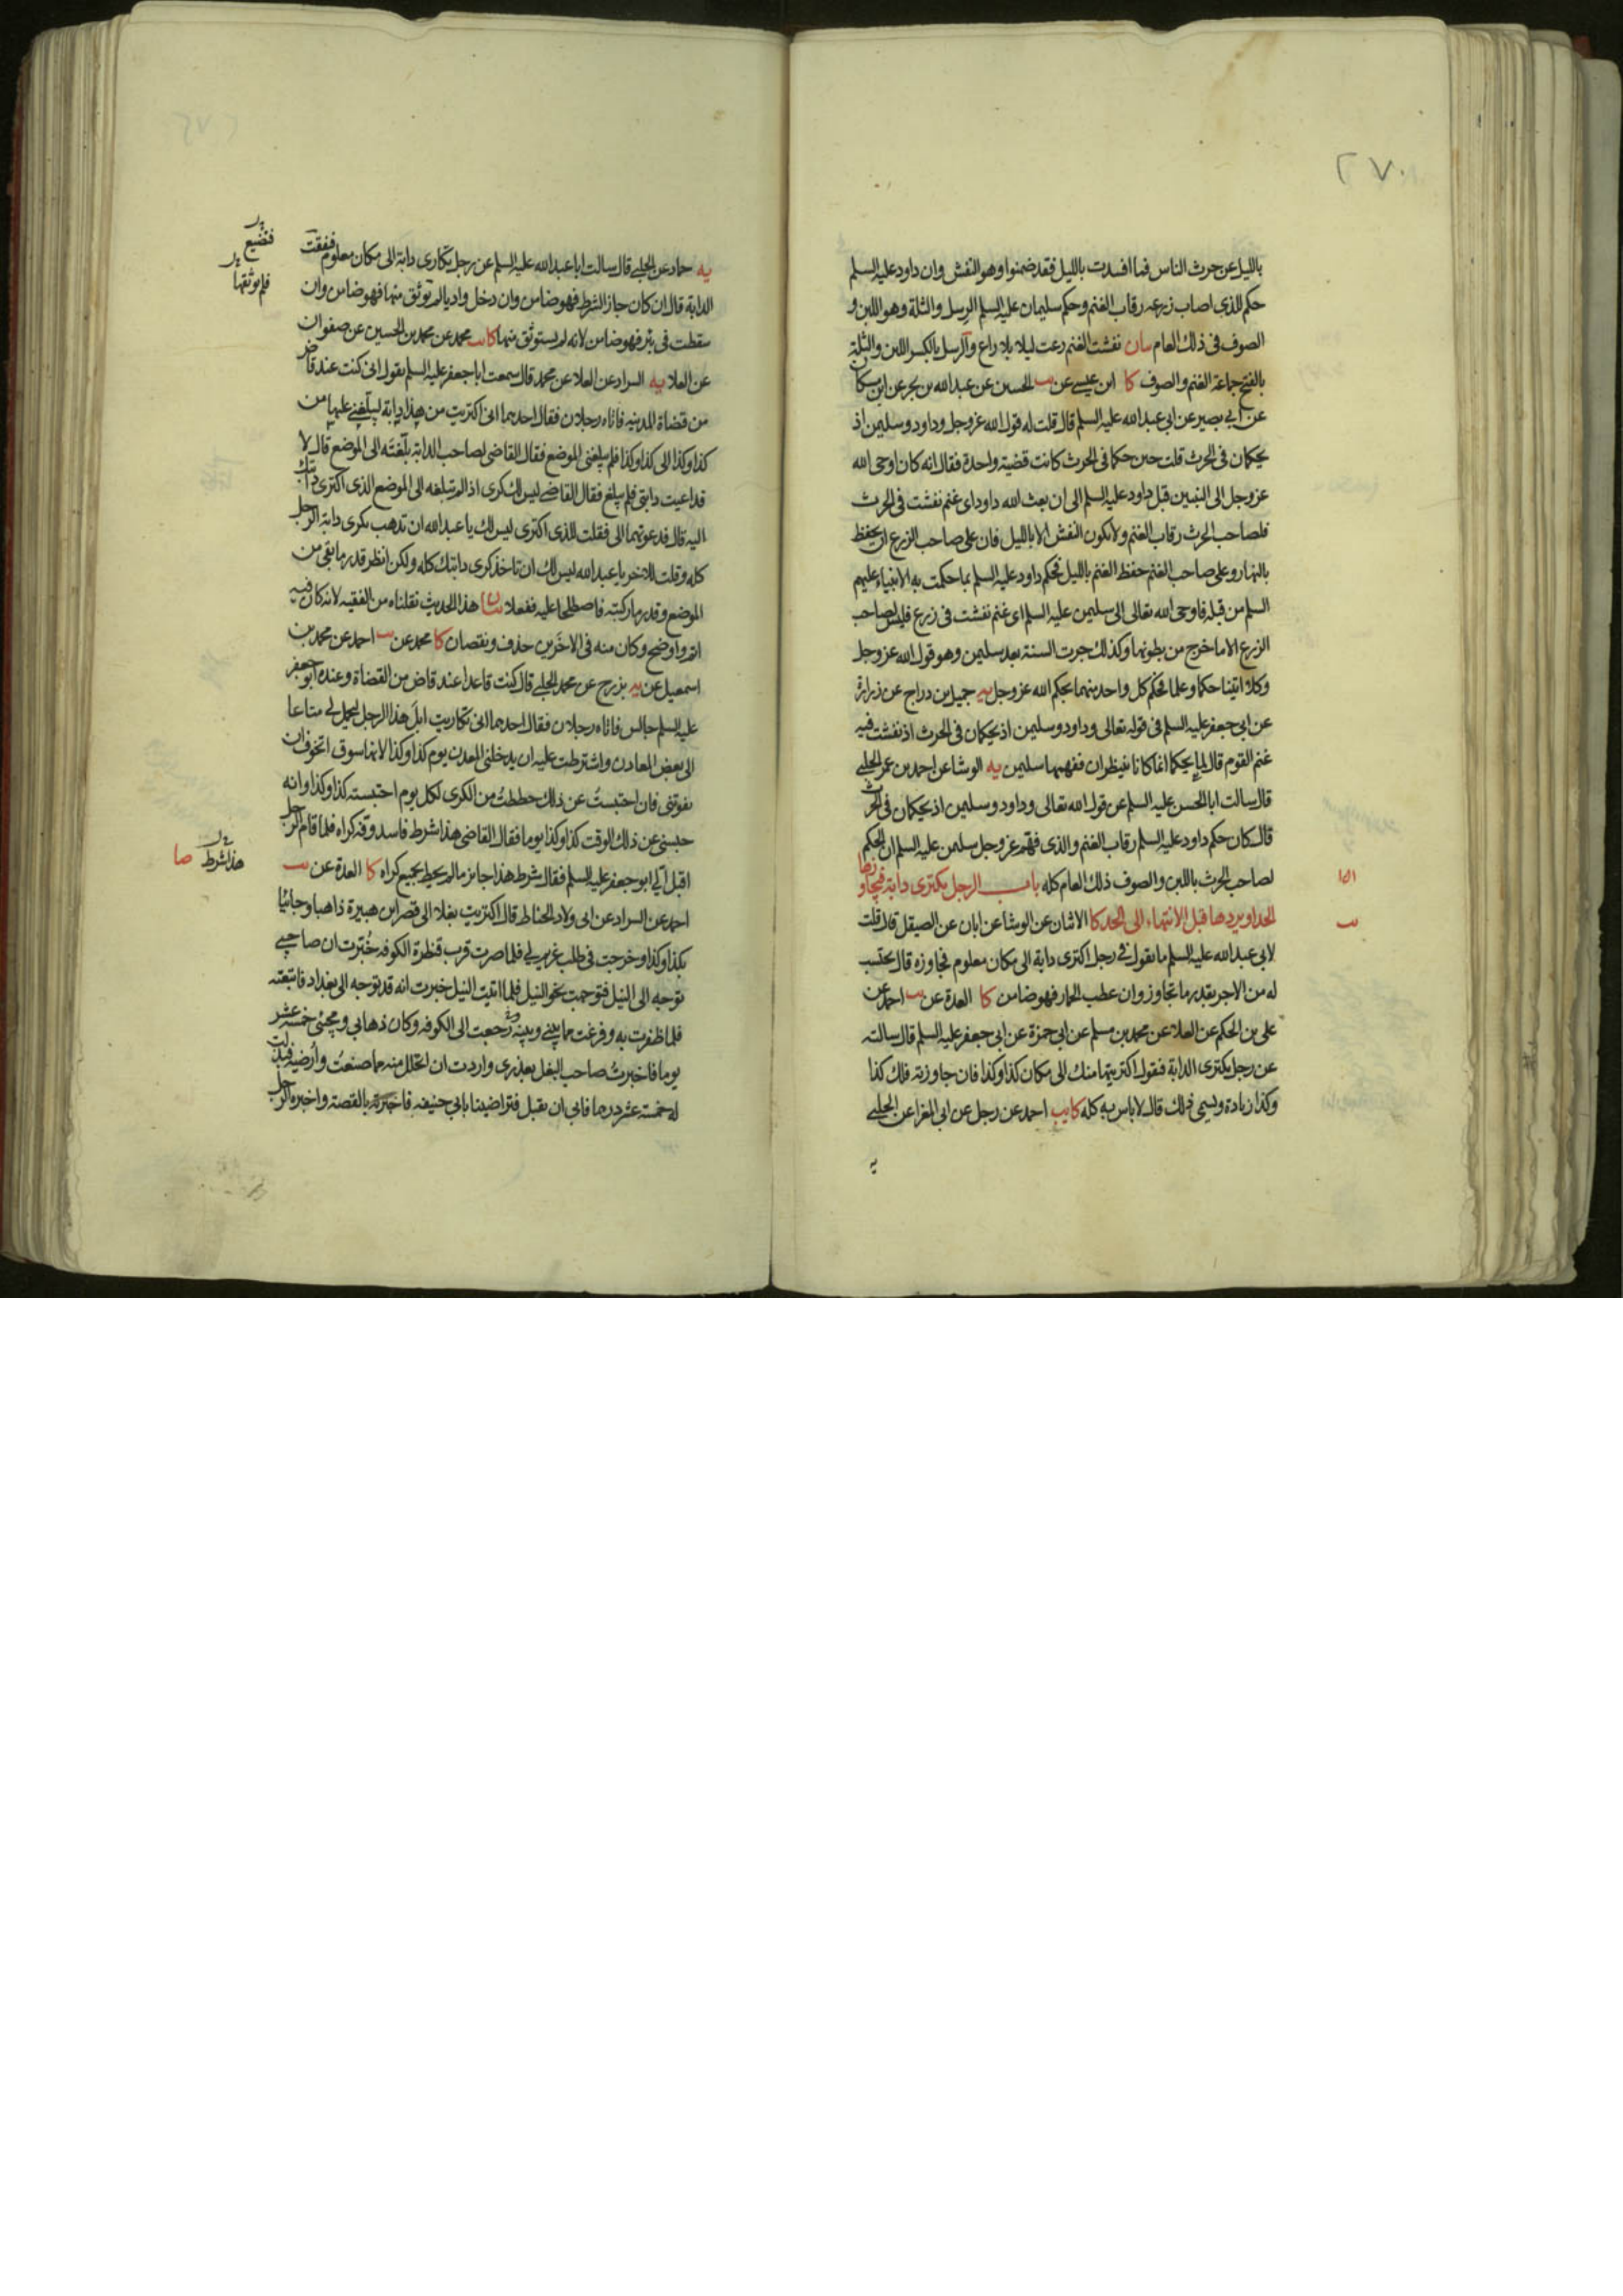 ٢٧٠
بالليل عن حرث الناس فما افسدت بالليل فقد ضمنوا وهو النفش وان داود عليه السلم
حكم للذي اصاب زرعه رقاب الغنم وحكم سليمان عليه السلم الرسل والثلة وهو اللبن و
الصوف في ذلك العام بيان نفشت الغنم رعت ليلا بلا راع والرسل بالكسر اللبن والثلة
بالفتح جماعة الغنم والصوف كا ابن عيسى عن الحسين عن عبد الله بن بحر عن ابن مسكان
عن ابي بصير عن ابي عبد الله عليه السلم قال قلت له قول الله عز وجل وداود وسليمن اذ
يحكمان في الحرث قلت حين حكما في الحرث كانت قضية واحدة فقال انه كان اوحى الله
عز وجل الى النبيين قبل داود عليه السلم الى ان بعث الله داود اي غنم نفشت في الحرث
فلصاحب الحرث رقاب الغنم ولا يكون النفش الا بالليل فان على صاحب الزرع ان يحفظ
بالنهار وعلى صاحب الغنم حفظ الغنم بالليل فحكم داود عليه السلم بما حكمت به الانبياء عليهم
السلم من قبله فاوحى الله تعالى الى سليمن عليه السلم اي غنم نفشت في زرع فليس لصاحب
الزرع الا ما خرج من بطونها وكذلك جرت السنة بعد سليمن وهو قول الله عز وجل
وكلا اتينا حكما وعلما فحكم كل واحد منهما بحكم الله عز وجل يه جميل بن دراج عن زرارة
عن ابي جعفر عليه السلم في قوله تعالى وداود وسليمن اذ يحكمان في الحرث اذ نفشت فيه
غنم القوم قال لم يحكما انما كانا يتناظران ففهمها سليمن يه الوشا عن احمد بن عمر الحلبي
قال سالت ابا الحسن عليه السلم عن قول الله تعالى وداود وسليمن اذ يحكمان في الحرث
قال كان حكم داود عليه السلم رقاب الغنم والذي فهم عز وجل سليمن عليه السلم ان الحكم
لصاحب الحرث باللبن والصوف ذلك العام كله باب الرجل يكترى دابة فيجاوز بها
الحد او يردها قبل الانتهاء الى الحد كا الاثنان عن الوشا عن ابان عن الصيقل قال قلت
لابي عبد الله عليه السلم ما تقول في رجل اكترى دابة الى مكان معلوم فجاوزه قال يحتسب
له من الاجر بقدر ما تجاوز وان عطب الحمار فهو ضامن كا العدة عن احمد عن
علي بن الحكم عن العلا عن محمد بن مسلم عن ابي حمزة عن ابي جعفر عليه السلم قال سالته
عن رجل يكترى الدابة فيقول اكتريتها منك الى مكان كذا وكذا فان جاوزته فلك كذا
وكذا زيادة ويسمى ذلك قال لا باس به كله كا يب احمد عن رجل عن ابي المغرا عن الحلبي
يه
يه حماد عن الحلبي قال سالت ابا عبد الله عليه السلم عن رجل تكارى دابة الى مكان معلوم فنفقت
الدابة قال ان كان جاز الشرط فهو ضامن وان دخل واديا لم يوثق منها فهو ضامن وان
سقطت في بئر فهو ضامن لانه لم يستوثق منها كا محمد عن محمد بن الحسين عن صفوان
عن العلا يه السراد عن العلا عن محمد قال سمعت ابا جعفر عليه السلم يقول اني كنت عند قاض
من قضاة المدينة فاتاه رجلان فقال احدهما اني اكتريت من هذا دابة ليبلغني عليها من
كذا وكذا الى كذا وكذا فلم يبلغني الموضع فقال القاضي لصاحب الدابة بلغته الى الموضع قال لا
قد اعيت دابتي فلم يبلغ فقال القاضي ليس لك كرى اذا لم تبلغه الى الموضع الذي اكترى دابتك
اليه قال فدعوتهما الى فقلت للذي اكترى ليس لك يا عبد الله ان تذهب بكرى دابة الرجل
كله وقلت للاخر يا عبد الله ليس لك ان تاخذ كرى دابتك كله ولكن انظر قدر ما بقي من
الموضع وقدر ما ركبته فاصطلحا عليه ففعلا بيان هذا الحديث نقلناه من الفقيه لانه كان فيه
اتم واوضح وكان منه في الاخرين حذف ونقصان كا محمد عن احمد عن محمد بن
اسمعيل عن يه بزرج عن محمد الحلبي قال كنت قاعدا عند قاض من القضاة وعنده ابو جعفر
عليه السلم جالس فاتاه رجلان فقال احدهما اني تكاريت ابل هذا الرجل ليحمل لي متاعا
الى بعض المعادن واشترطت عليه ان يدخلني المعدن يوم كذا وكذا لانها سوق اتخوف ان
يفوتني فان احتبست عن ذلك حططت من الكرى لكل يوم احتبسته كذا وكذا وانه
حبسني عن ذلك الوقت كذا وكذا يوما فقال القاضي هذا شرط فاسد وفه كراه فلما قام الرجل
اقبل الي ابو جعفر عليه السلم فقال شرط هذا جايز ما لم يحط بجميع كراه كا العدة عن
احمد عن السراد عن ابي ولاد الحناط قال اكتريت بغلا الى قصر ابن هبيرة ذاهبا وجائيا
بكذا وكذا وخرجت في طلب غريم لي فلما صرت قرب قنطرة الكوفه خبرت ان صاحبي
توجه الى النيل فتوجهت نحو النيل فلما اتيت النيل خبرت انه قد توجه الى بغداد فاتبعته
فلما ظفرت به وفرغت مما بيني وبينه ورجعت الى الكوفه وكان ذهابي ومجيئى خمسة عشر
يوما فاخبرت صاحب البغل بعذري واردت ان اتحلل منه مما صنعت وارضيه فبذلت
له خمسة عشر درهما فابى ان يقبل فتراضينا بابي حنيفه فاخبرته بالقصة واخبره الرجل
فضيع
فلم يوثقها
هذا شرط صا